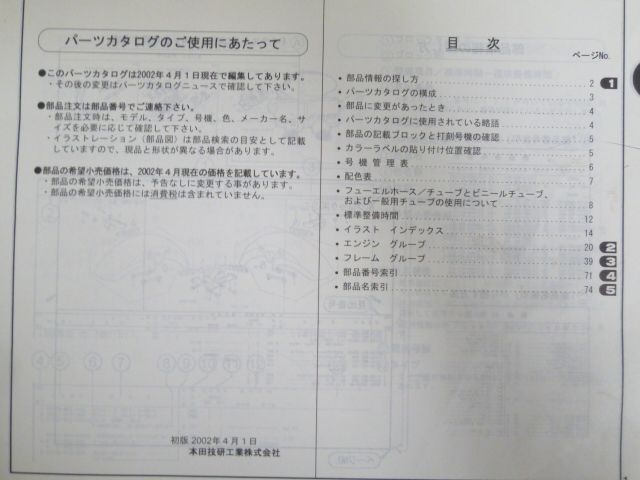 パーツカタログのご使用にあたって
●このパーツカタログは2002年4月1日現在で編集してあります。
・その後の変更はパーツカタログニュースで確認して下さい。
●部品注文は部品番号でご連絡下さい。
・部品注文時は、モデル、タイプ、号機、色、メーカー名、サ
イズを必要に応じて確認して下さい。
・イラストレーション（部品図）は部品検索の目安として記載
していますので、現品と形状が異なる場合があります。
●部品の希望小売価格は、2002年4月現在の価格を記載しています。
・部品の希望小売価格は、予告なしに変更する事があります。
・部品の希望小売価格には消費税は含まれていません。
初版 2002年4月1日
本田技研工業株式会社
目 次
ページNo.
・部品情報の探し方 2 1
・パーツカタログの構成 3
・部品に変更があったとき 4
・パーツカタログに使用されている略語 4
・部品の記載ブロックと打刻号機の確認 5
・カラーラベルの貼り付け位置確認 5
・号機管理表 6
・配色表 7
・フューエルホース／チューブとビニールチューブ、
および一般用チューブの使用について 8
・標準整備時間 12
・イラスト インデックス 14
・エンジン グループ 20 2
・フレーム グループ 39 3
・部品番号索引 71 4
・部品名索引 74 5